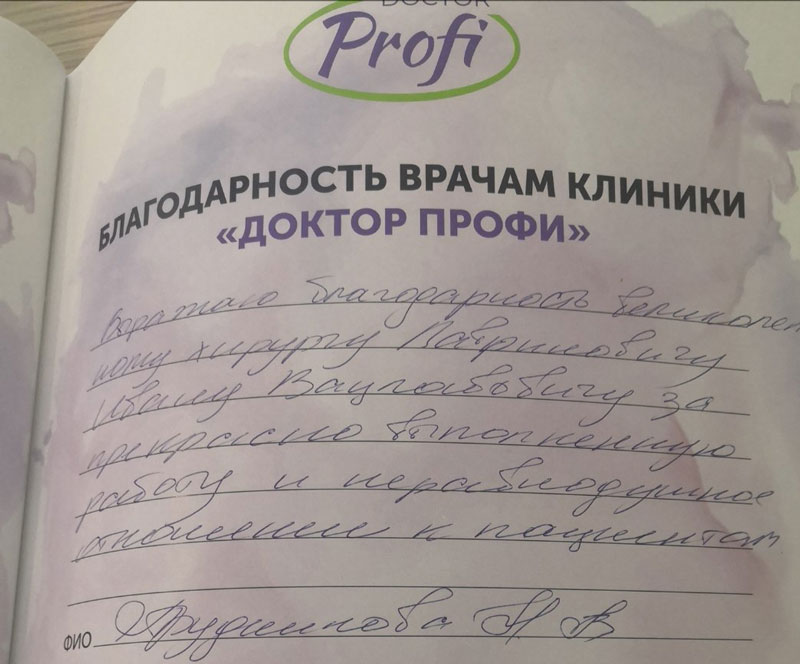 DOCTOR
Profi
БЛАГОДАРНОСТЬ ВРАЧАМ КЛИНИКИ
«ДОКТОР ПРОФИ»
Выражаю благодарность великолеп
ному хирургу
Ивану Вацлавовичу за
прекрасно выполненную
работу и неравнодушное
отношение к пациентам
ФИО Н В